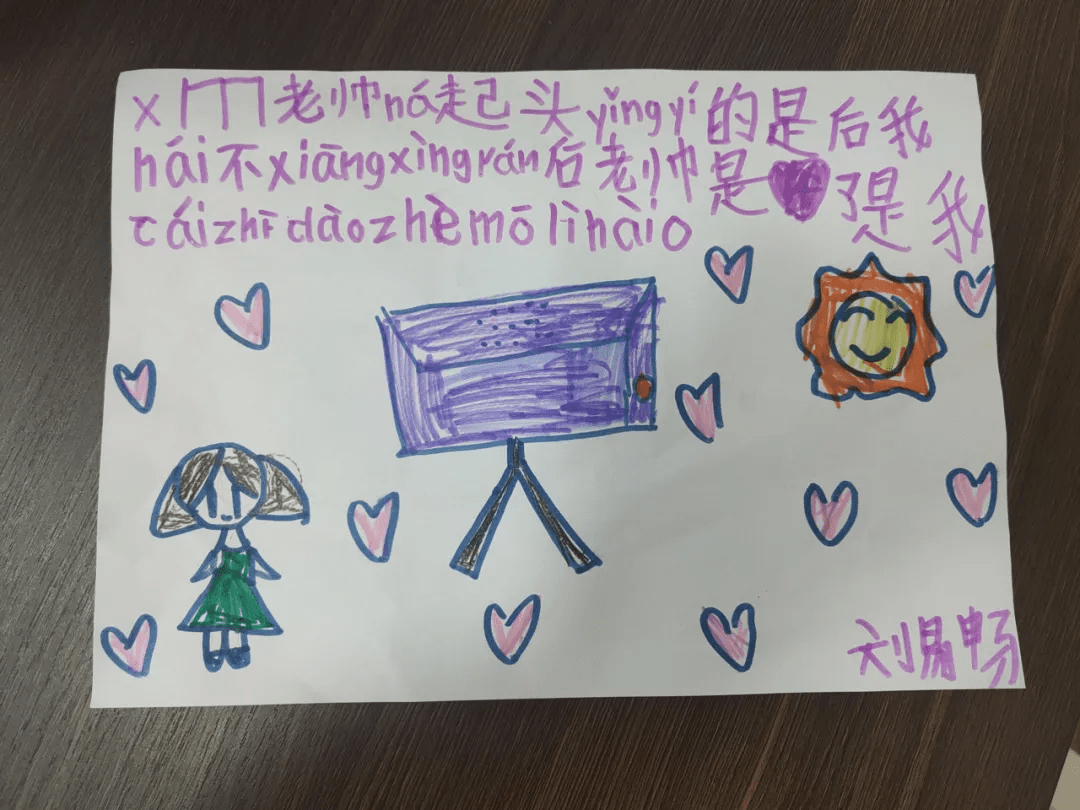 x 老帅ná起头yǐngyí的是后我
hái不xiāngxìngrán后老帅是了是我
cáizhīdàozhèmōlìhàio
刘易畅